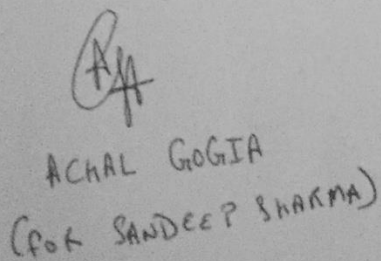 ACHAL GOGIA
(FOR SANDEEP SHARMA)